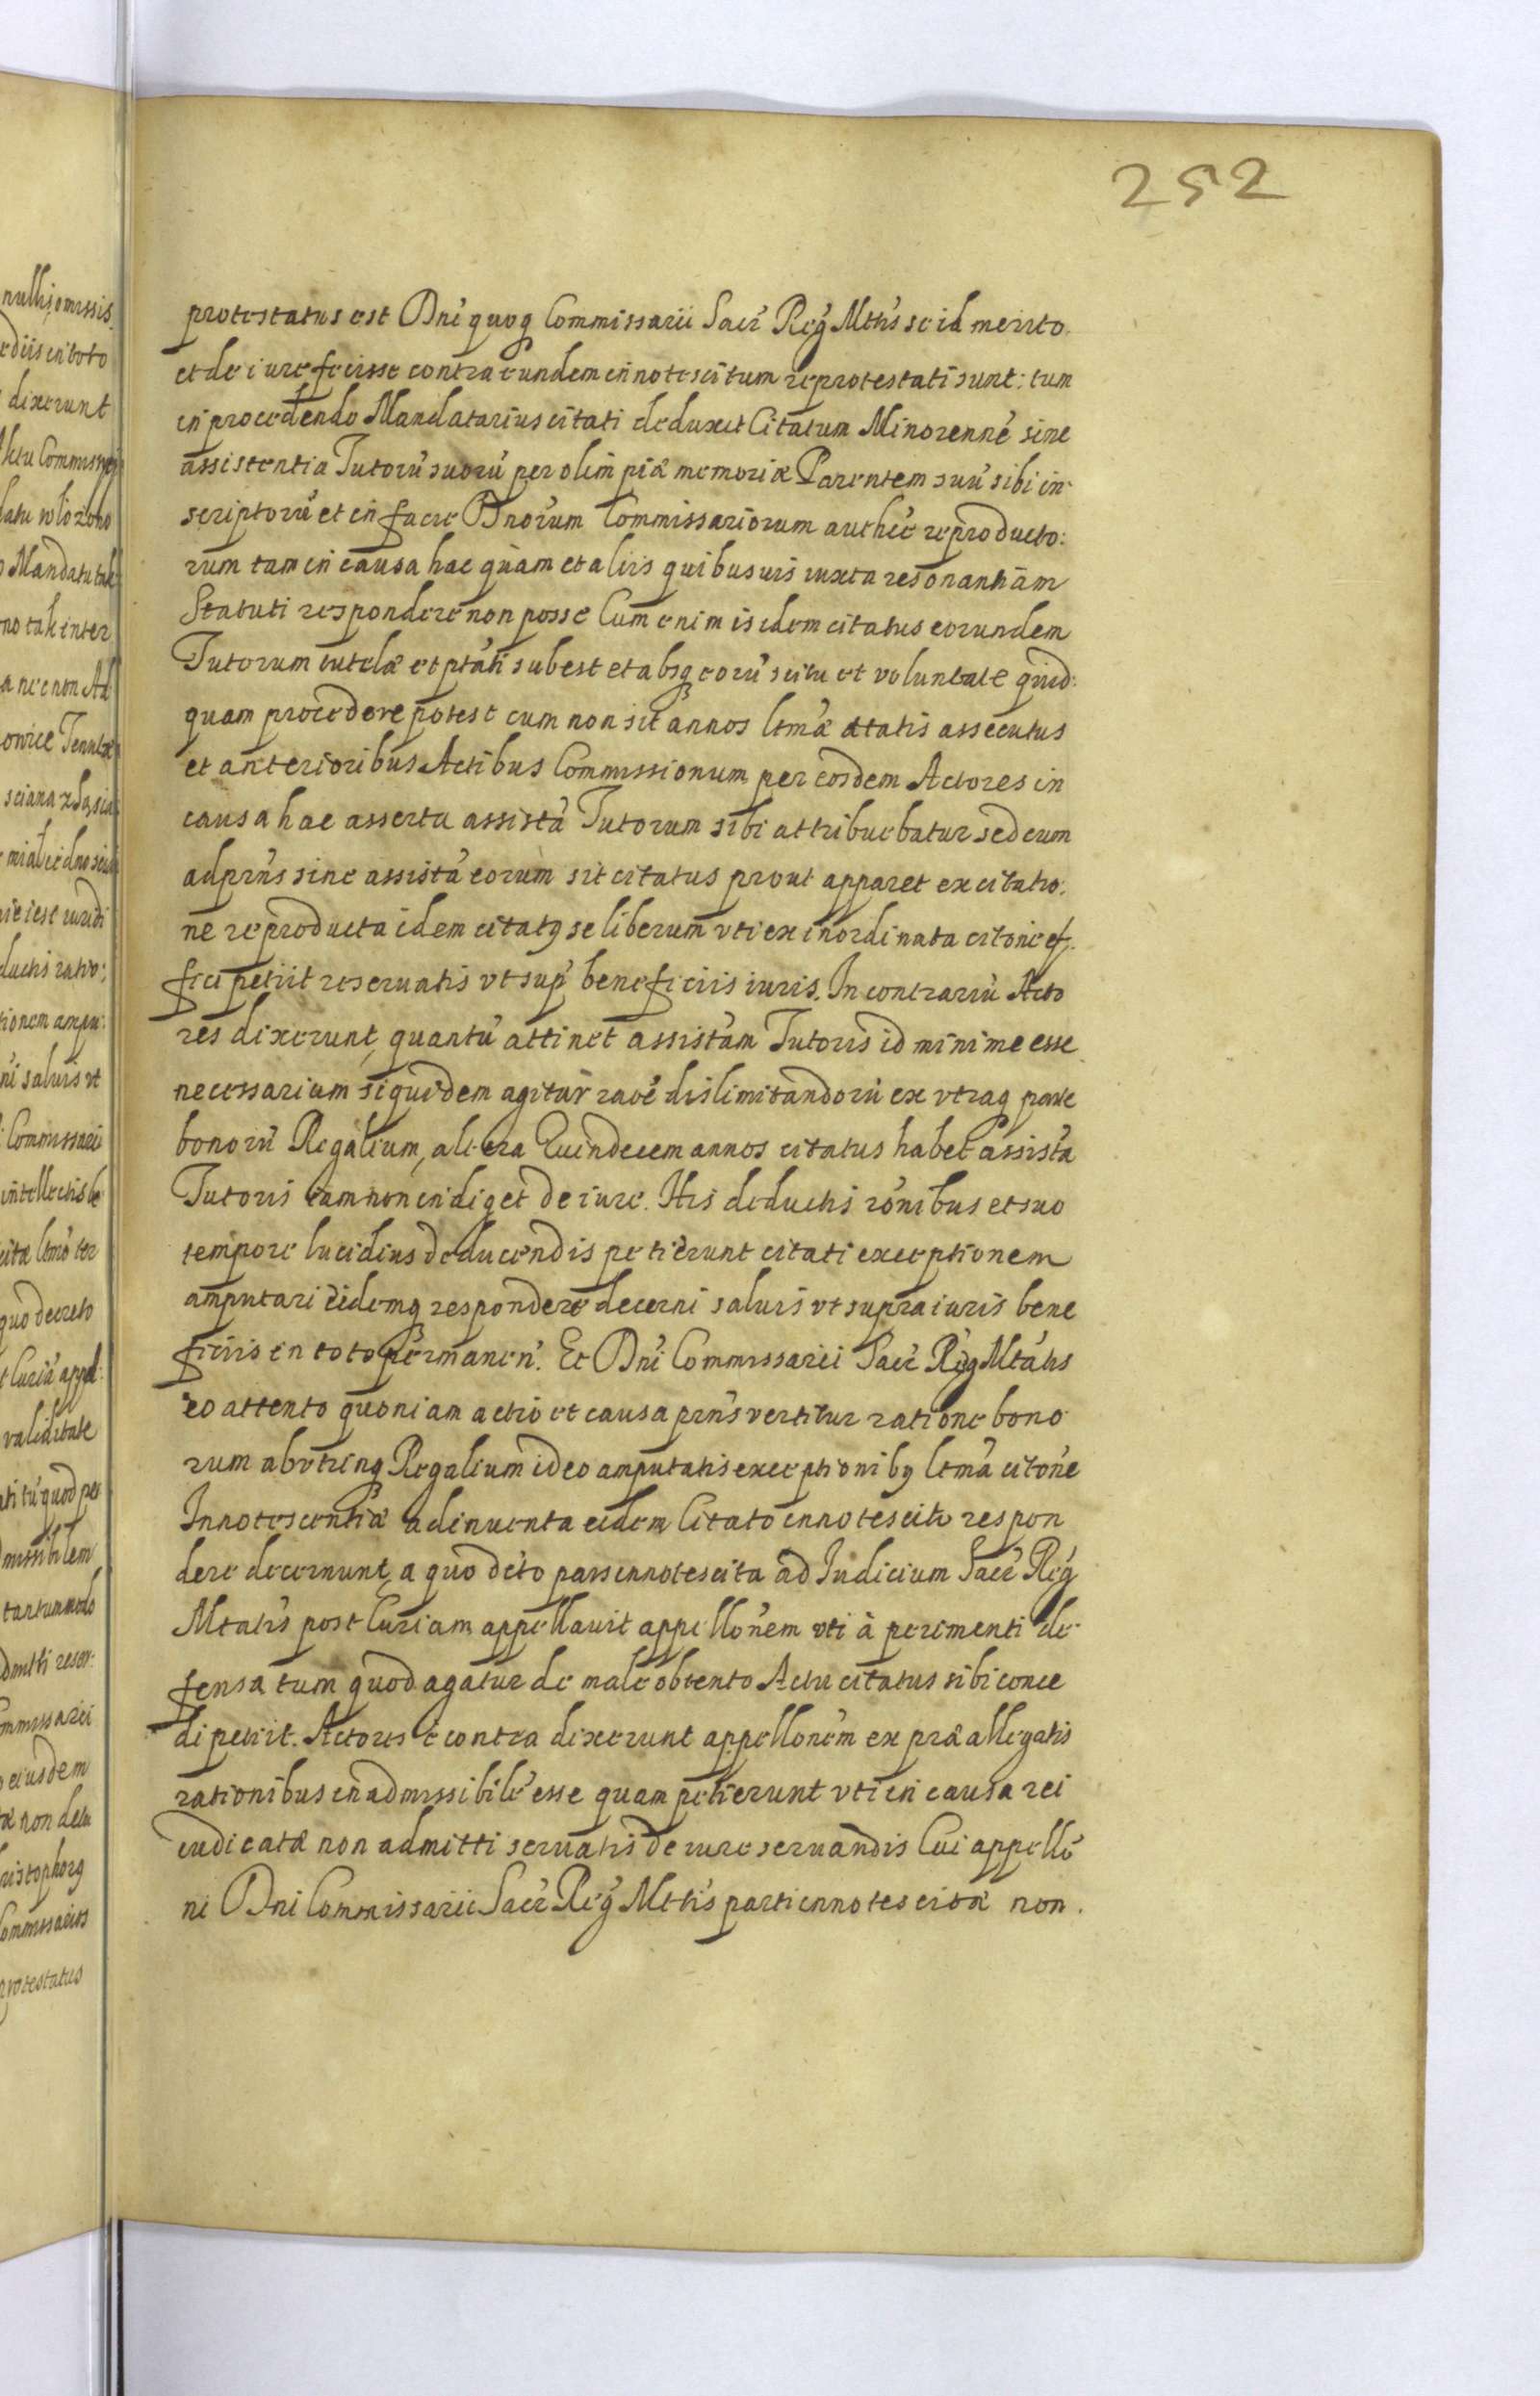 252
protestatus est Dni quoq Commissarii Sacr Reg Mtis se id merito
et de iure fecisse contra eundem innotescitum reprotestati sunt: tum
in procedendo Mandatarius citati deduxit Citatum Minorenne sine
assistentia Tutorū suorū per olim piæ memoriæ Parentem suū sibi in
scriptorū et in facie Dnorum Commissariorum authēc reproducto:
rum tam in causa hac quam et aliis quibusuis iuxta resonantiam
Statuti respondere non posse Cum enim isdem citatus eorundem
Tutorum tutelæ et ptāti subest et absq eorū scitu et voluntate quid:
quam procedere potest cum non sit annos ltmæ ætatis assecutus
et anterioribus Actibus Commissionum per eosdem Actores in
causa hac assertu assistā Tutorum sibi attribuebatur sed cum
ad prns sine assistā eorum sit citatus prout apparet ex citatio:
ne reproducta idem citatq se liberum vti ex inordinata citone ef.
fici petiit reseruatis vt sup beneficiis iuris. In contrariū Acto
res dixerunt, quantū attinet assistam Tutoris id minime esse
necessarium siquidem agitur raōe dislimitandorū ex vtraq parte
bonorū Regalium, altera Quindecem annos citatus habet assistā
Tutoris iam non indiget de iure. His deductis rōnibus et suo
tempore lucidius deducendis petierunt citati exceptionem
amputari eidemq respondere decerni saluis vt supra iuris bene
ficiis in toto permanen. Et Dni Commissarii Sacr Reg Mtatis
eo attento quoniam actio et causa prns vertitur ratione bono
rum ab vtrinq Regalium ideo amputatis exceptionibq ltma citone
Innotescentiæ adinuenta eidem Citato innotescito respon
dere decernunt, a quo dcto pars innotescita ad Iudicium Sacr Reg
Mtatis post Curiam appellauit appellonem vti à perimenti de
fensa tum quod agatur de male obtento Actu citatus sibi conce
di petiit. Actores è contra dixerunt appellonem ex præallegatis
rationibus inadmissibilē esse quam petierunt vti in causa rei
iudicatæ non admitti seruatis de iure seruandis Cui appello
ni Dni Commissarii Sacr Reg Mttis parti innotescitæ non.